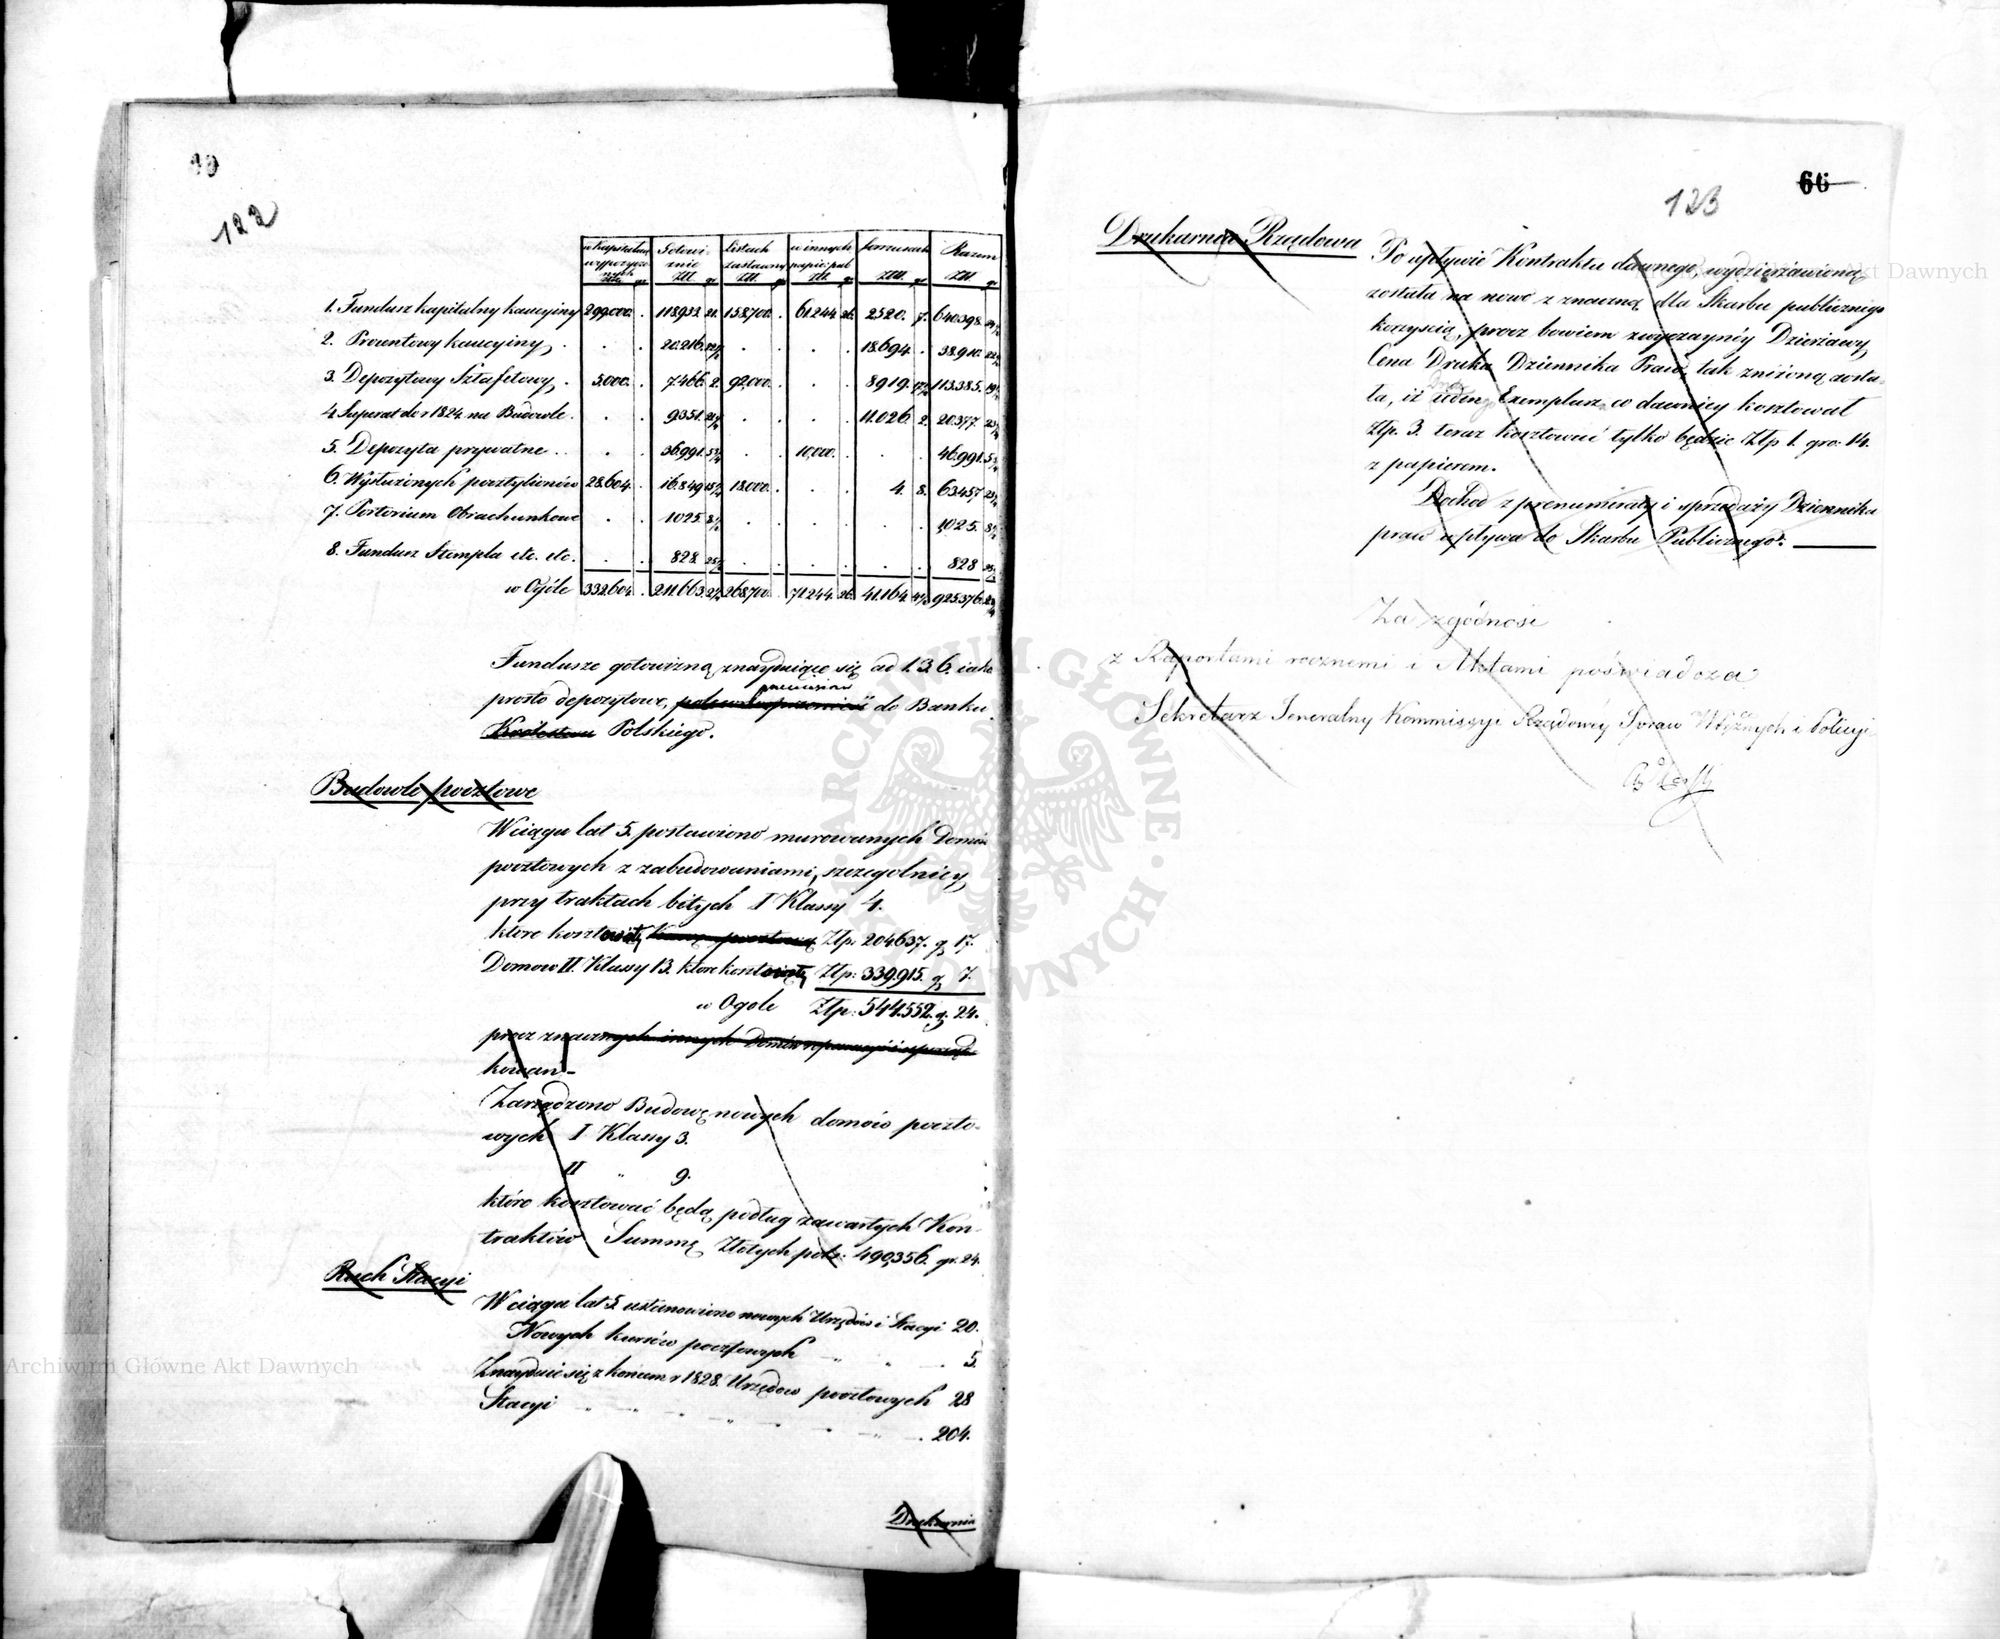 122
w Kapitałach wypożyczonych Złt gr | Gotowiznie Złt gr | Listach zastawnych Złt gr | w innych papie: pub Złt gr | Remanentach Złt gr | Razem Złt gr
1. Fundusz kapitalny kaucyiny 299000. . 118933. 21. 158700. . 61244. 26. 2520. 7. 640398.
2. Procentowy kaucyiny . . . 20.216. . . . . 18.694. . 38.910.
3. Depozytowy Sztafetowy . 5.000. . 7466. 2. 92,000. . . . 8919. 113.385.
4. Superat do r 1824. na Budowle . . . 9351. . . . . 11.026. 2. 20.377.
5. Depozyta prywatne . . . . 36.991. . . 10,000. . . . 46.991.
6. Wysłużonych pocztylionów 28.604. . 16.849 18.000. . . . 4. 8. 63457
7. Portorium Obrachunkowe . . 1025. . . . . . . 1025.
8. Fundusz Stempla etc. etc. . . 828 . . . . . . 828
w Ogóle 332604 . 211.663. 268,700 . 71.244. 26. 41.164. 925.376.
Fundusze gotowizną znayduiące się ad 1. 3. 6. iako
prosto depozytowe, do Banku
Polskiego.
Budowle pocztowe
W ciągu lat 5. postawiono murowanych Domów
pocztowych z zabudowaniami, szczególniey
przy traktach bitych I Klassy 4.
które kosztowały Złp: 204637. g 17.
Domow II. Klassy 13. które kosztowały Złp: 339.915. g 7.
w Ogole Złp: 544.552. g. 24.
prócz znacznych innych Domów reparacyi i uporząd-
kowań -
Zarządzono Budowę nowych domów poczto-
wych I Klassy 3.
II " 9.
które kosztować będą podług zawartych Kon-
traktów Summę Złotych pols: 490,356. gr. 24.
Ruch Stacyi
W ciągu lat 5. ustanowiono nowych Urzędów i Stacyi 20.
Nowych kursów pocztowych " " 5.
Znayduie się z końcem r 1828. Urzędów pocztowych 28
Stacyi " " " " " " 204.
Drukarnia
66
123
Drukarnia Rządowa
Po upływie Kontraktu dawnego, wydzierżawioną
została na nowo z znaczną dla Skarbu publicznego
korzyścią, prócz bowiem zwyczaynéy Dzierżawy
Cena Druku Dziennika Praw, tak zniżoną zosta-
ła, iż ieden Exemplarz co dawniey kosztował
Złp. 3. teraz kosztować tylko będzie Złp 1. gro: 14.
z papierem.
Dochod z prenumeraty i sprzedaży Dziennika
praw wpływa do Skarbu Publicznego.
Za zgodność
z Raportami rocznemi i Aktami poświadcza
Sekretarz Jeneralny Kommissyi Rządowéy Spraw Wewnętrznych i Policyi
Archiwum Główne Akt Dawnych
Akt Dawnych
ARCHIWUM GŁÓWNE AKT DAWNYCH